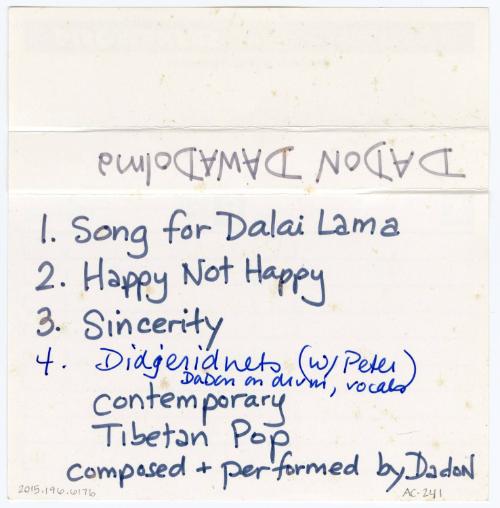 DADON DAWADolma
1. Song for Dalai Lama
2. Happy Not Happy
3. Sincerity
4. Didgeridnets (w/ Peter)
DaDon on drum, vocals
contemporary
Tibetan Pop
composed + performed by Dadon
2015.196.6176
AC-241